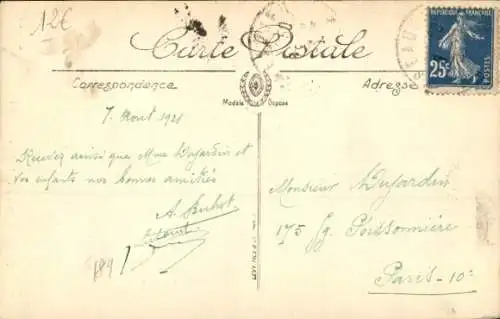 12€
Carte Postale
RÉPUBLIQUE FRANÇAISE
25c
POSTES
Correspondance
Adresse
Modèle Déposé
7 Aout 1921
Recevez ainsi que Mme Dujardin et
vos enfants nos bonnes amitiés
A.
Monsieur Dujardin
175 fg. Poissonnière
Paris-10e